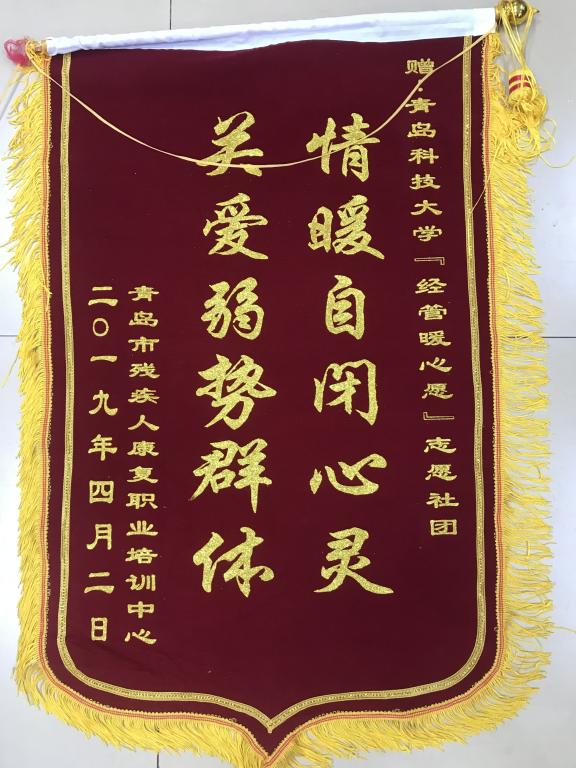 赠·青岛科技大学『经管暖心愿』志愿社团
情暖自闭心灵
关爱弱势群体
青岛市残疾人康复职业培训中心
二〇一九年四月二日